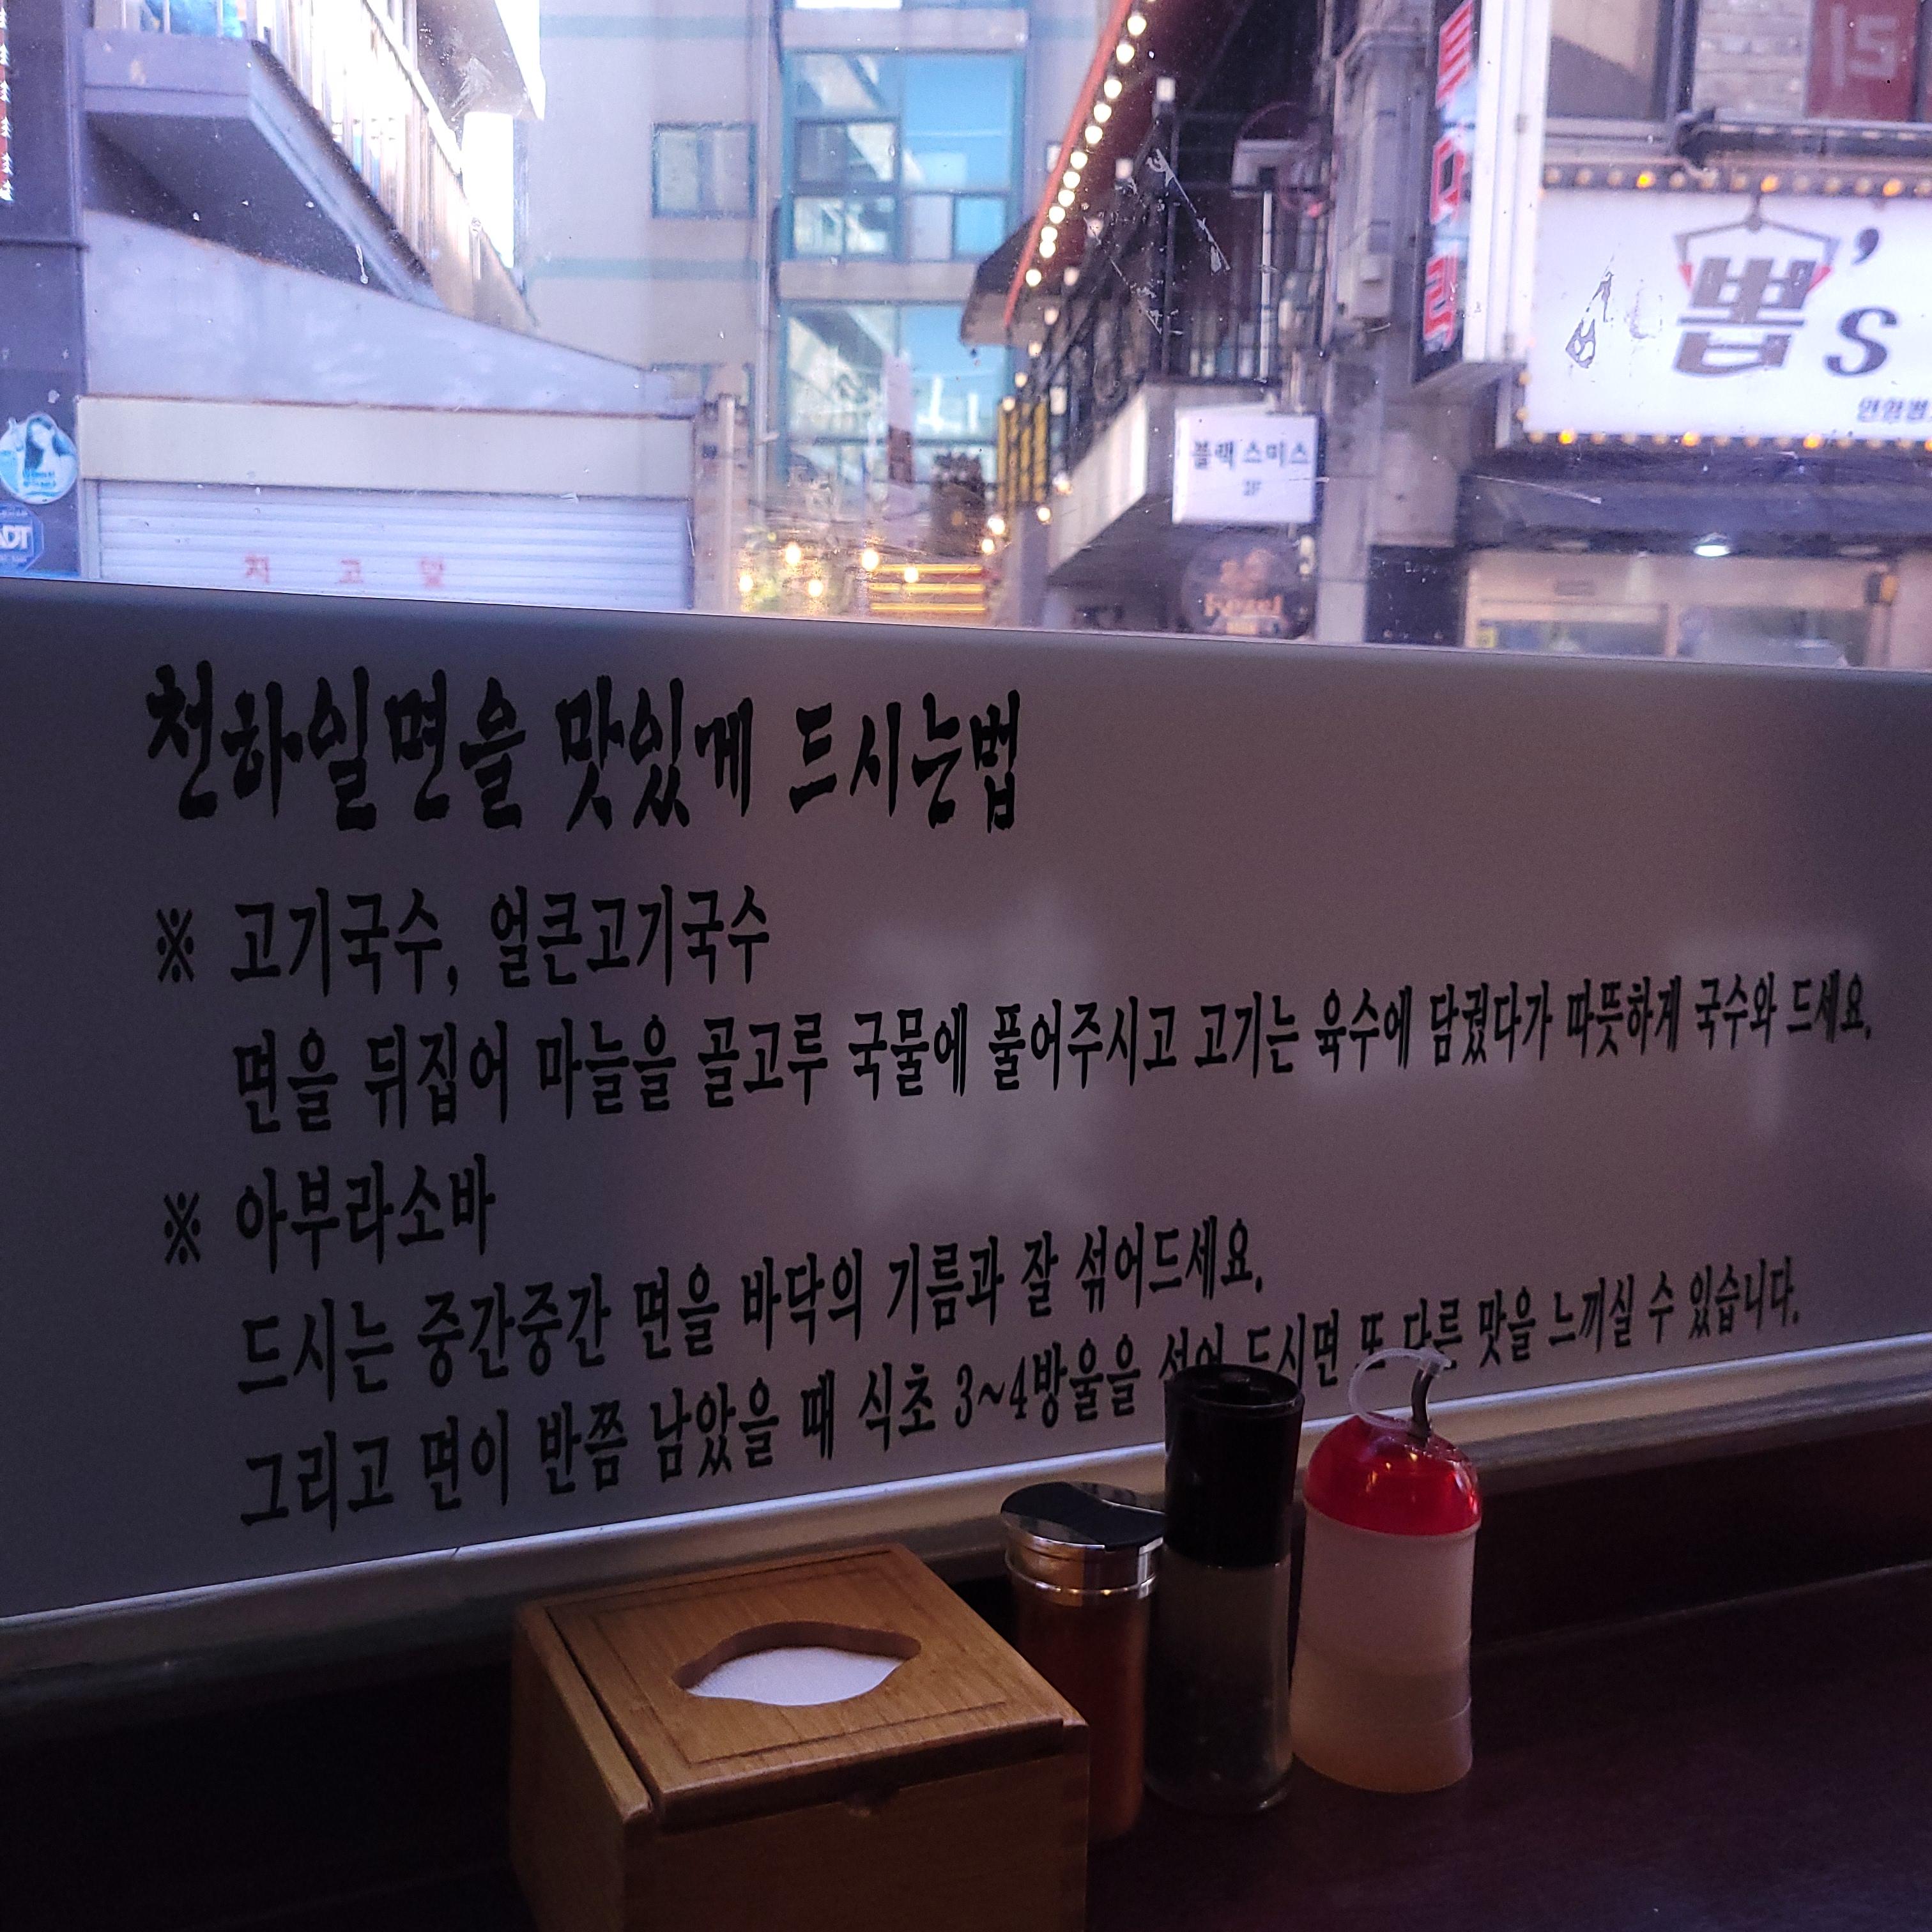 뽑's
블랙스미스
2F
ADT
차 고 앞
천하일면을 맛있게 드시는법
※ 고기국수, 얼큰고기국수
면을 뒤집어 마늘을 골고루 국물에 풀어주시고 고기는 육수에 담궜다가 따뜻하게 국수와 드세요.
※ 아부라소바
드시는 중간중간 면을 바닥의 기름과 잘 섞어드세요.
그리고 면이 반쯤 남았을 때 식초 3~4방울을 섞어 드시면 또 다른 맛을 느끼실 수 있습니다.